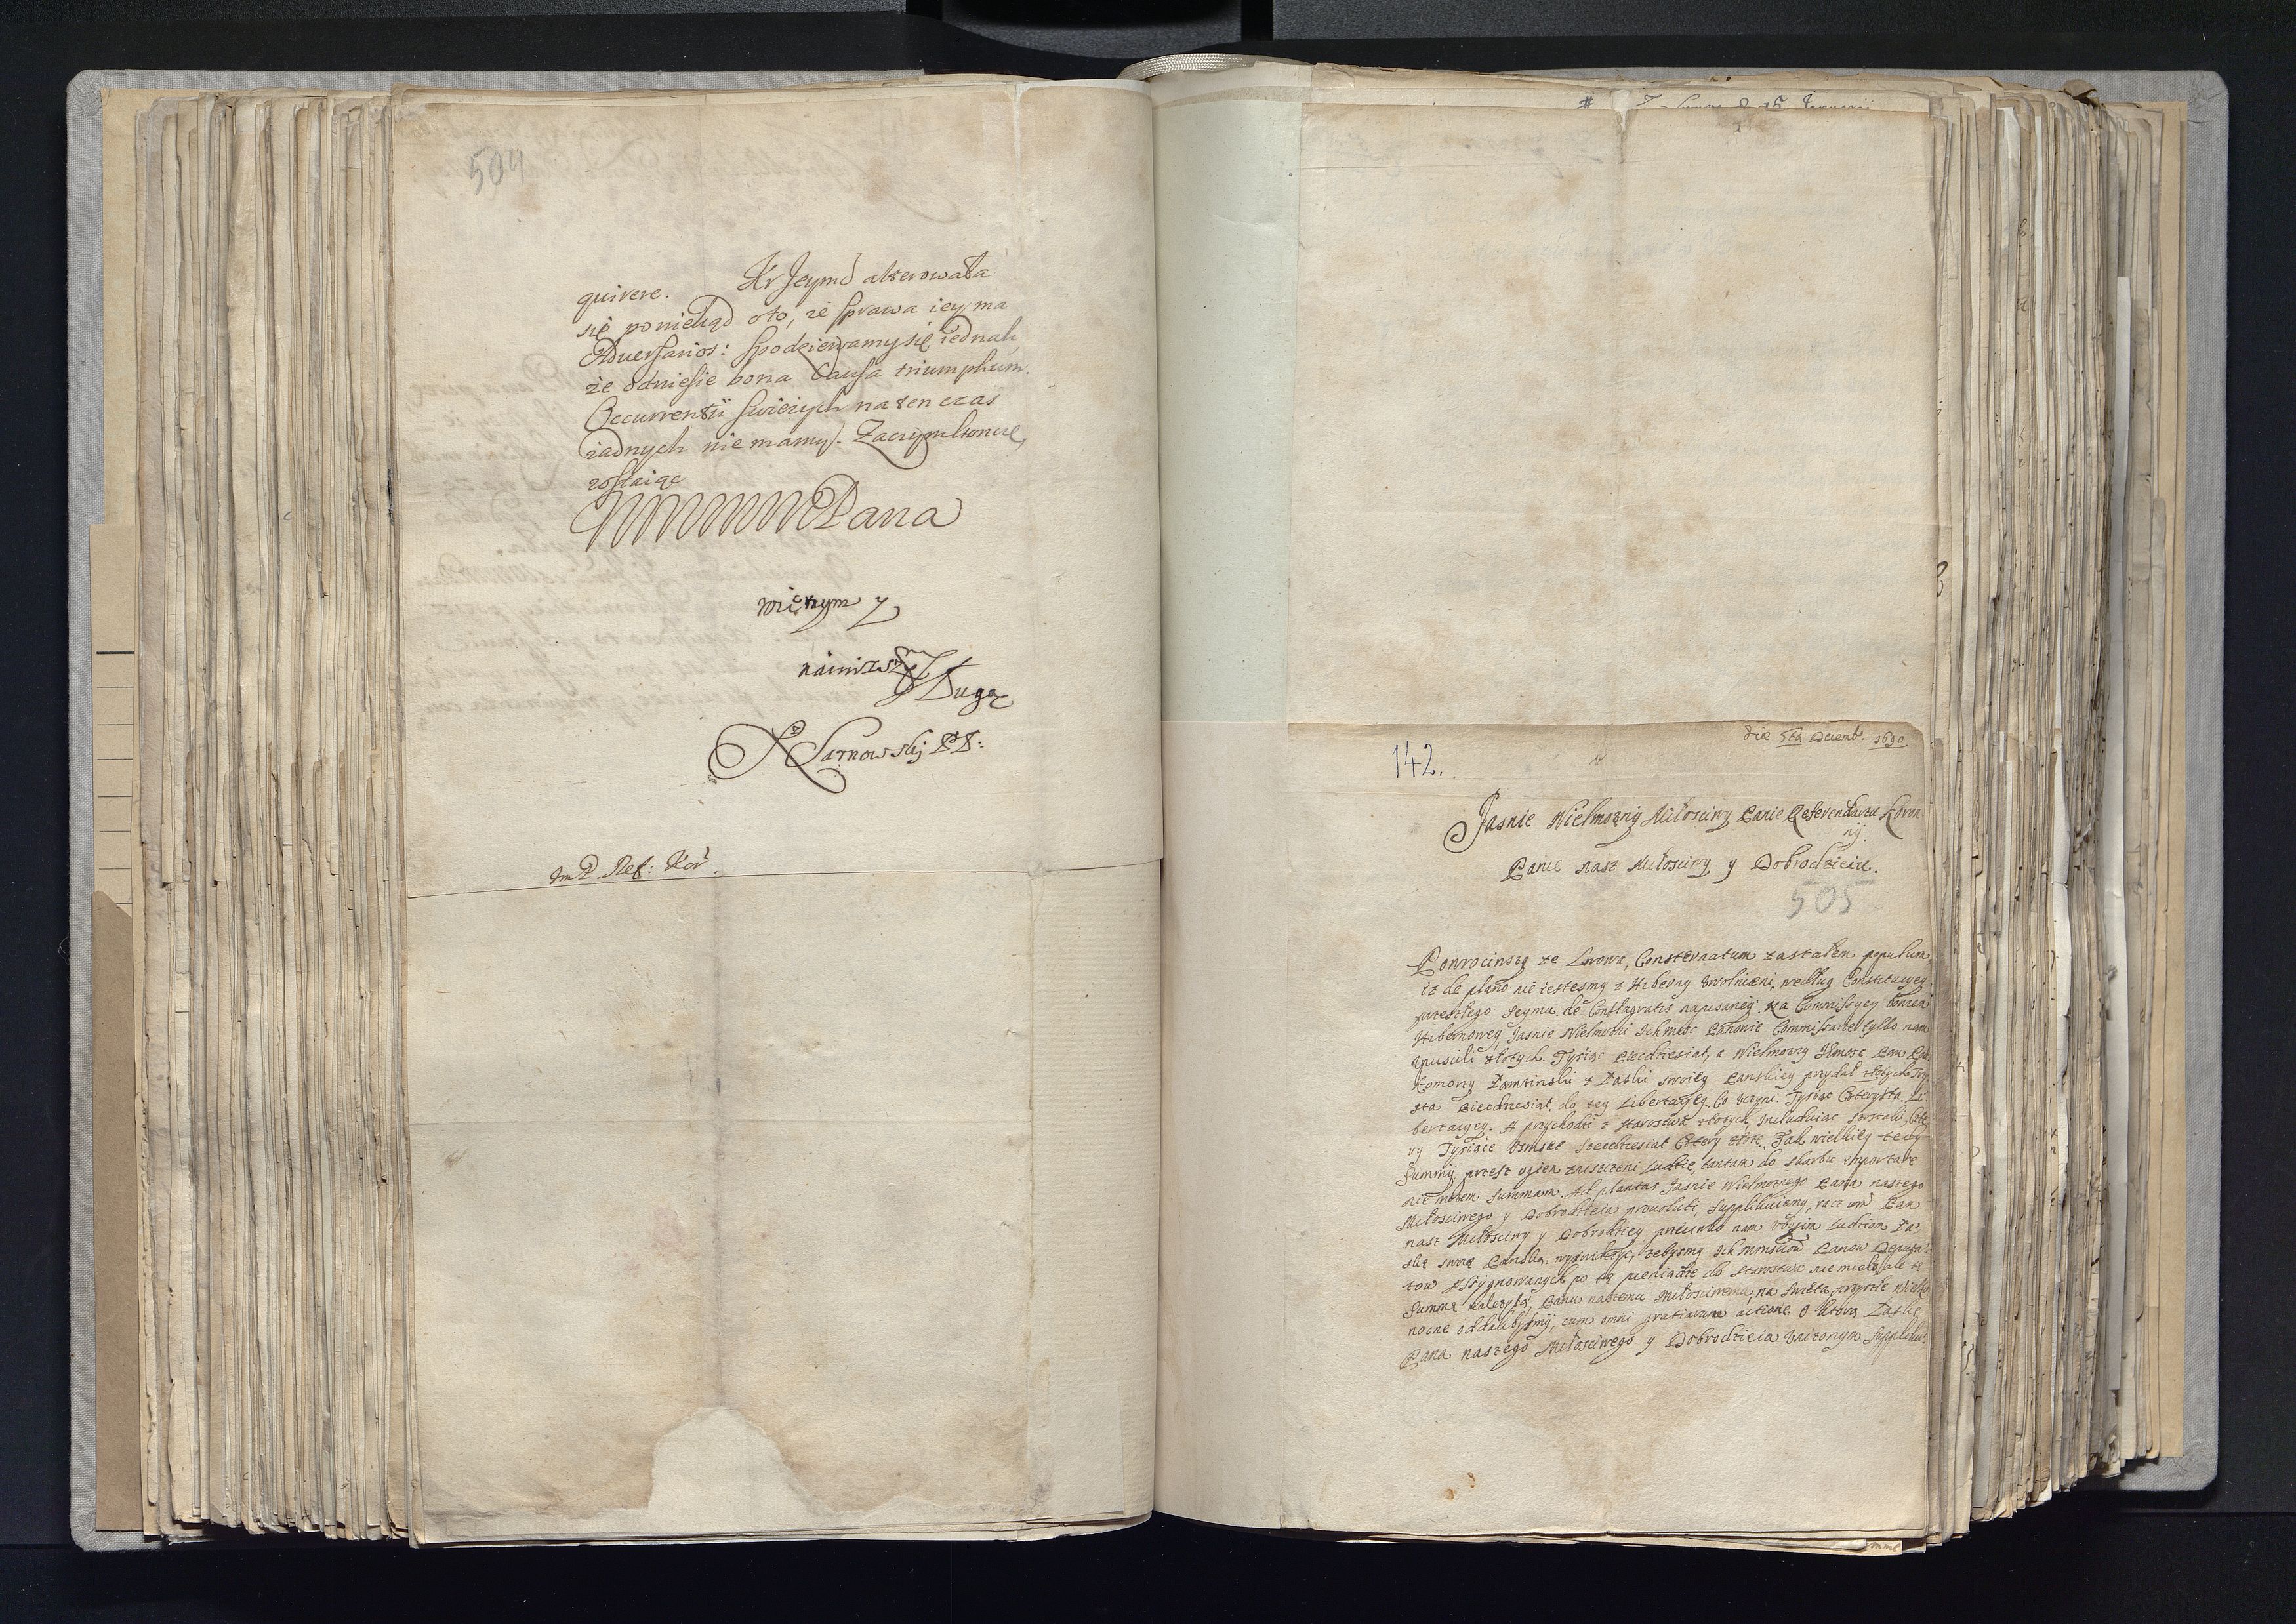 504
quirere. Xv Jeymć alterowała
się poniekąd oto, że sprawa iey ma
Adversarios: spodziewamy się iednak,
że odniesie bona Causa triumphum.
Occurrentii swieżych na ten czas
żadnych nie mamy. Zaczym koncze,
zostaiąc
Pana
wiernym y
naniższym
Sługą
Sarnowskj
Im P. Ref: Kor.
die 5ta Decemb. 1690
142.
Jasnie Wielmozny Miłosciwy Panie Referendarzu Koron
ny.
Panie nasz Miłosciwy y Dobrodzieiu.
505
Powrociwszy ze Lwowa, Consternatum zastałem populum,
iż de plano nie iestesmy z Hyberny uwolnieni, według Constitucyey
przeszłego Seymu de Conflagratis napisaney. Na Commissyey bowiem
Hybernowey Jasnie Wielmozni Ichmosc Panowie Commissarze tylko nam
opuscili złotych Tysiąc Piecdziesiat, a Wielmozny Jmosc Pan Pod
komorzy z Łaski swoiey Panskiey przydał złotych Trzy
sta Piecdziesiat do tey Libertacyey. Co uczyni Tysiąc Czterysta Li
bertacyey. A przychodzi z Starostwa złotych includuiąc Czte
ry Tysiące Osmset Szescdziesiat Cztery złote. Tak wielkiey tedy
Summy przez ogien zniszczeni Ludzie, tantam do skarbu importare
nie mozem Summam. Ad plantas Jasnie Wielmoznego Pana naszego
Miłosciwego y Dobrodzieia prouoluti, supplikuiemy, racz Pan
nasz Miłosciwy y Dobrodziey nam ubogim Ludziom Ła
skę swoią Panską, wyswiadczyc, zebysmy Ich Panow Deputa
tow assygnowanych po te pieniądze do Starostwa nie mieli, ale tę
Summę nalezytą, Panu naszemu Miłosciwemu, na Swięta przyszłe Wielka
nocne oddalibysmy, cum omni gratiarum actione. O ktorą Łaskę
Pana naszego Miłosciwego y Dobrodzieia unizonym